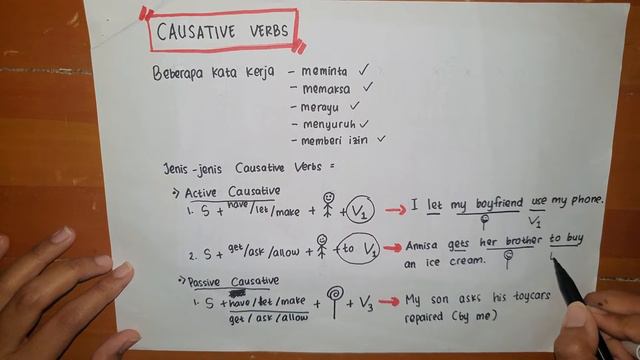 CAUSATIVE VERBS
Beberapa kata kerja - meminta ✓
- memaksa ✓
- merayu ✓
- menyuruh ✓
- memberi izin ✓
Jenis-jenis Causative Verbs =
Active Causative
1. S + have/let/make + + V1 → I let my boyfriend use my phone.
V1
2. S + get/ask/allow + + to V1 → Annisa gets her brother to buy
an ice cream.
Passive Causative
1. S + have/let/make + + V3 → My son asks his toycars
get/ask/allow repaired (by me)